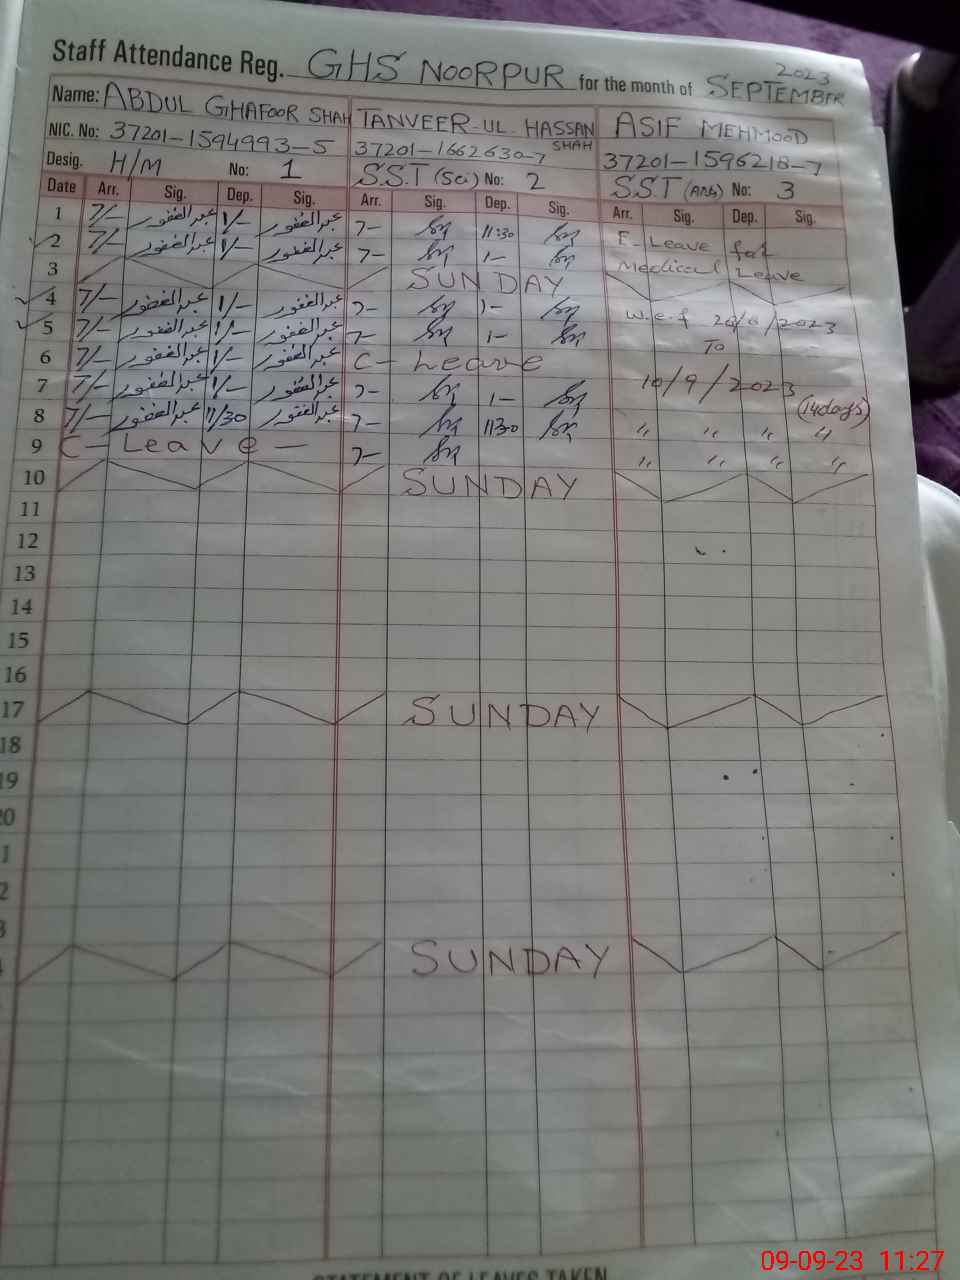 Staff Attendance Reg. GHS NOORPUR for the month of SEPTEMBER 2023
Name: ABDUL GHAFOOR SHAH TANVEER-UL-HASSAN SHAH ASIF MEHMOOD
NIC. No: 37201-1594993-5 37201-1662630-7 37201-1596218-7
Desig. H/M No: 1 S.S.T (Sci) No: 2 S.S.T (Arts) No: 3
Date Arr. Sig. Dep. Sig. Arr. Sig. Dep. Sig. Arr. Sig. Dep. Sig.
1 7/- عبدالغفور 1/- عبدالغفور 7- 11:30 E. Leave for
2 7/- عبدالغفور 1/- عبدالغفور 7- 1- Medical Leave
3 SUNDAY
4 7/- عبدالغفور 1/- عبدالغفور 7- 1- w.e.f 2023
5 7/- عبدالغفور 1/- عبدالغفور 7- 1- To
6 7/- عبدالغفور 1/- عبدالغفور C- Leave
7 7/- عبدالغفور 1/- عبدالغفور 7- 1- 10/9/2023 (14days)
8 7/- عبدالغفور 11/30 عبدالغفور 7- 1130 " " " "
9 C- Leave- 7- " " " "
10 SUNDAY
11
12
13
14
15
16
17 SUNDAY
18
19
20
1
2
3
SUNDAY
STATEMENT OF LEAVES TAKEN
09-09-23 11:27